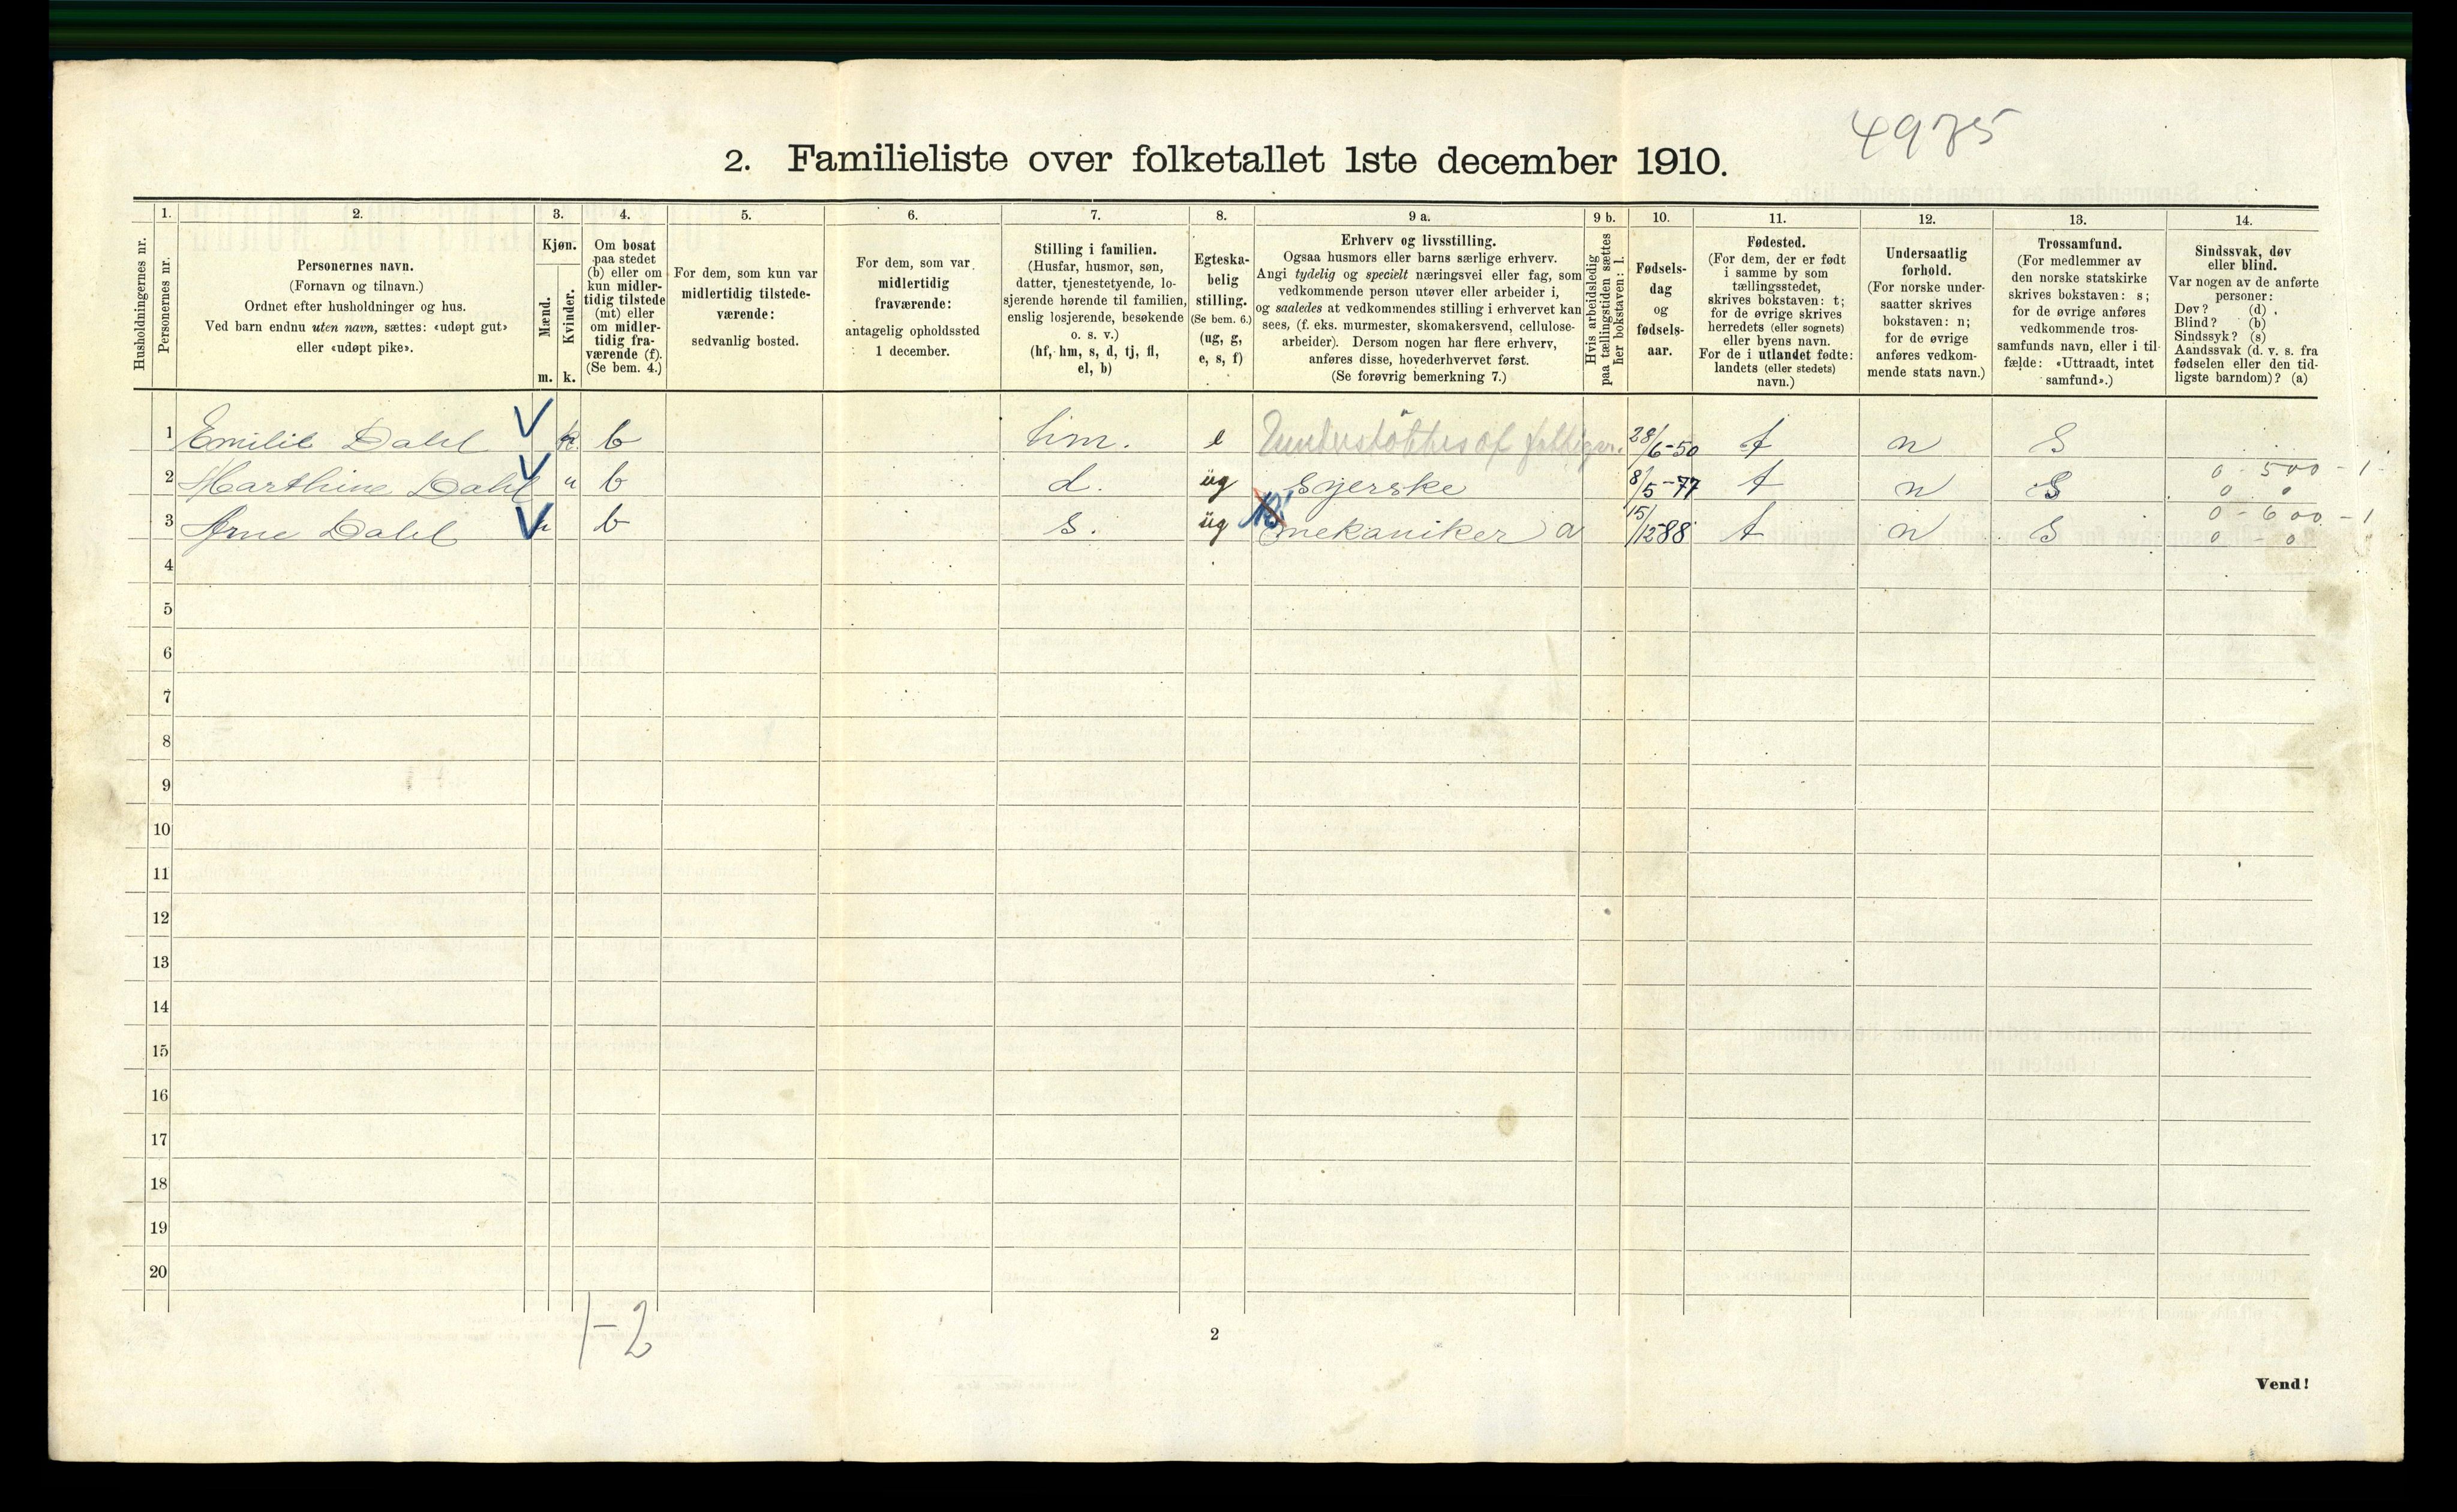 4975
2. Familieliste over folketallet 1ste december 1910.
1. 2. 3. 4. 5. 6. 7. 8. 9 a. 9 b. 10. 11. 12. 13. 14.
Husholdningernes nr.
Personernes nr.
Personernes navn.
(Fornavn og tilnavn.)
Ordnet efter husholdninger og hus.
Ved barn endnu uten navn, sættes: «udøpt gut»
eller «udøpt pike».
Kjøn.
Mænd.
Kvinder.
m. k.
Om bosat
paa stedet
(b) eller om
kun midler-
tidig tilstede
(mt) eller
om midler-
tidig fra-
værende (f).
(Se bem. 4.)
For dem, som kun var
midlertidig tilstede-
værende:
sedvanlig bosted.
For dem, som var
midlertidig
fraværende:
antagelig opholdssted
1 december.
Stilling i familien.
(Husfar, husmor, søn,
datter, tjenestetyende, lo-
sjerende hørende til familien,
enslig losjerende, besøkende
o. s. v.)
(hf, hm, s, d, tj, fl,
el, b)
Egteska-
belig
stilling.
(Se bem. 6.)
(ug, g,
e, s, f)
Erhverv og livsstilling.
Ogsaa husmors eller barns særlige erhverv.
Angi tydelig og specielt næringsvei eller fag, som
vedkommende person utøver eller arbeider i,
og saaledes at vedkommendes stilling i erhvervet kan
sees, (f. eks. murmester, skomakersvend, cellulose-
arbeider). Dersom nogen har flere erhverv,
anføres disse, hovederhvervet først.
(Se forøvrig bemerkning 7.)
Hvis arbeidsledig
paa tællingstiden sættes
her bokstaven: l.
Fødsels-
dag
og
fødsels-
aar.
Fødested.
(For dem, der er født
i samme by som
tællingsstedet,
skrives bokstaven: t;
for de øvrige skrives
herredets (eller sognets)
eller byens navn.
For de i utlandet fødte:
landets (eller stedets)
navn.)
Undersaatlig
forhold.
(For norske under-
saatter skrives
bokstaven: n;
for de øvrige
anføres vedkom-
mende stats navn.)
Trossamfund.
(For medlemmer av
den norske statskirke
skrives bokstaven: s;
for de øvrige anføres
vedkommende tros-
samfunds navn, eller i til-
fælde: «Uttraadt, intet
samfund».)
Sindssvak, døv
eller blind.
Var nogen av de anførte
personer:
Døv? (d)
Blind? (b)
Sindssyk? (s)
Aandssvak (d. v. s. fra
fødselen eller den tid-
ligste barndom)? (a)
1 Emilie Dahl k. b hm. e Understöttes af 28/6-50 t n S
2 Marthine Dahl " b d. ug Syerske 8/5-77 t n S 0 - 500 - 1
0 0
3 Arne Dahl b s. ug mekaniker a 15/12 88 t n S 0 - 600 - 1
0 - 0
4
5
6
7
8
9
10
11
12
13
14
15
16
17
18
19
20
1-2
2
Vend!